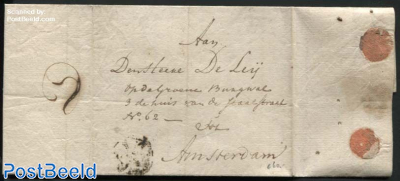 Aan
De Heere De Leij
op de Groene Burgwal
3 de huis van de Staalstraat
No. 62 —
Amsterdam
PostBeeld
PostBeeld